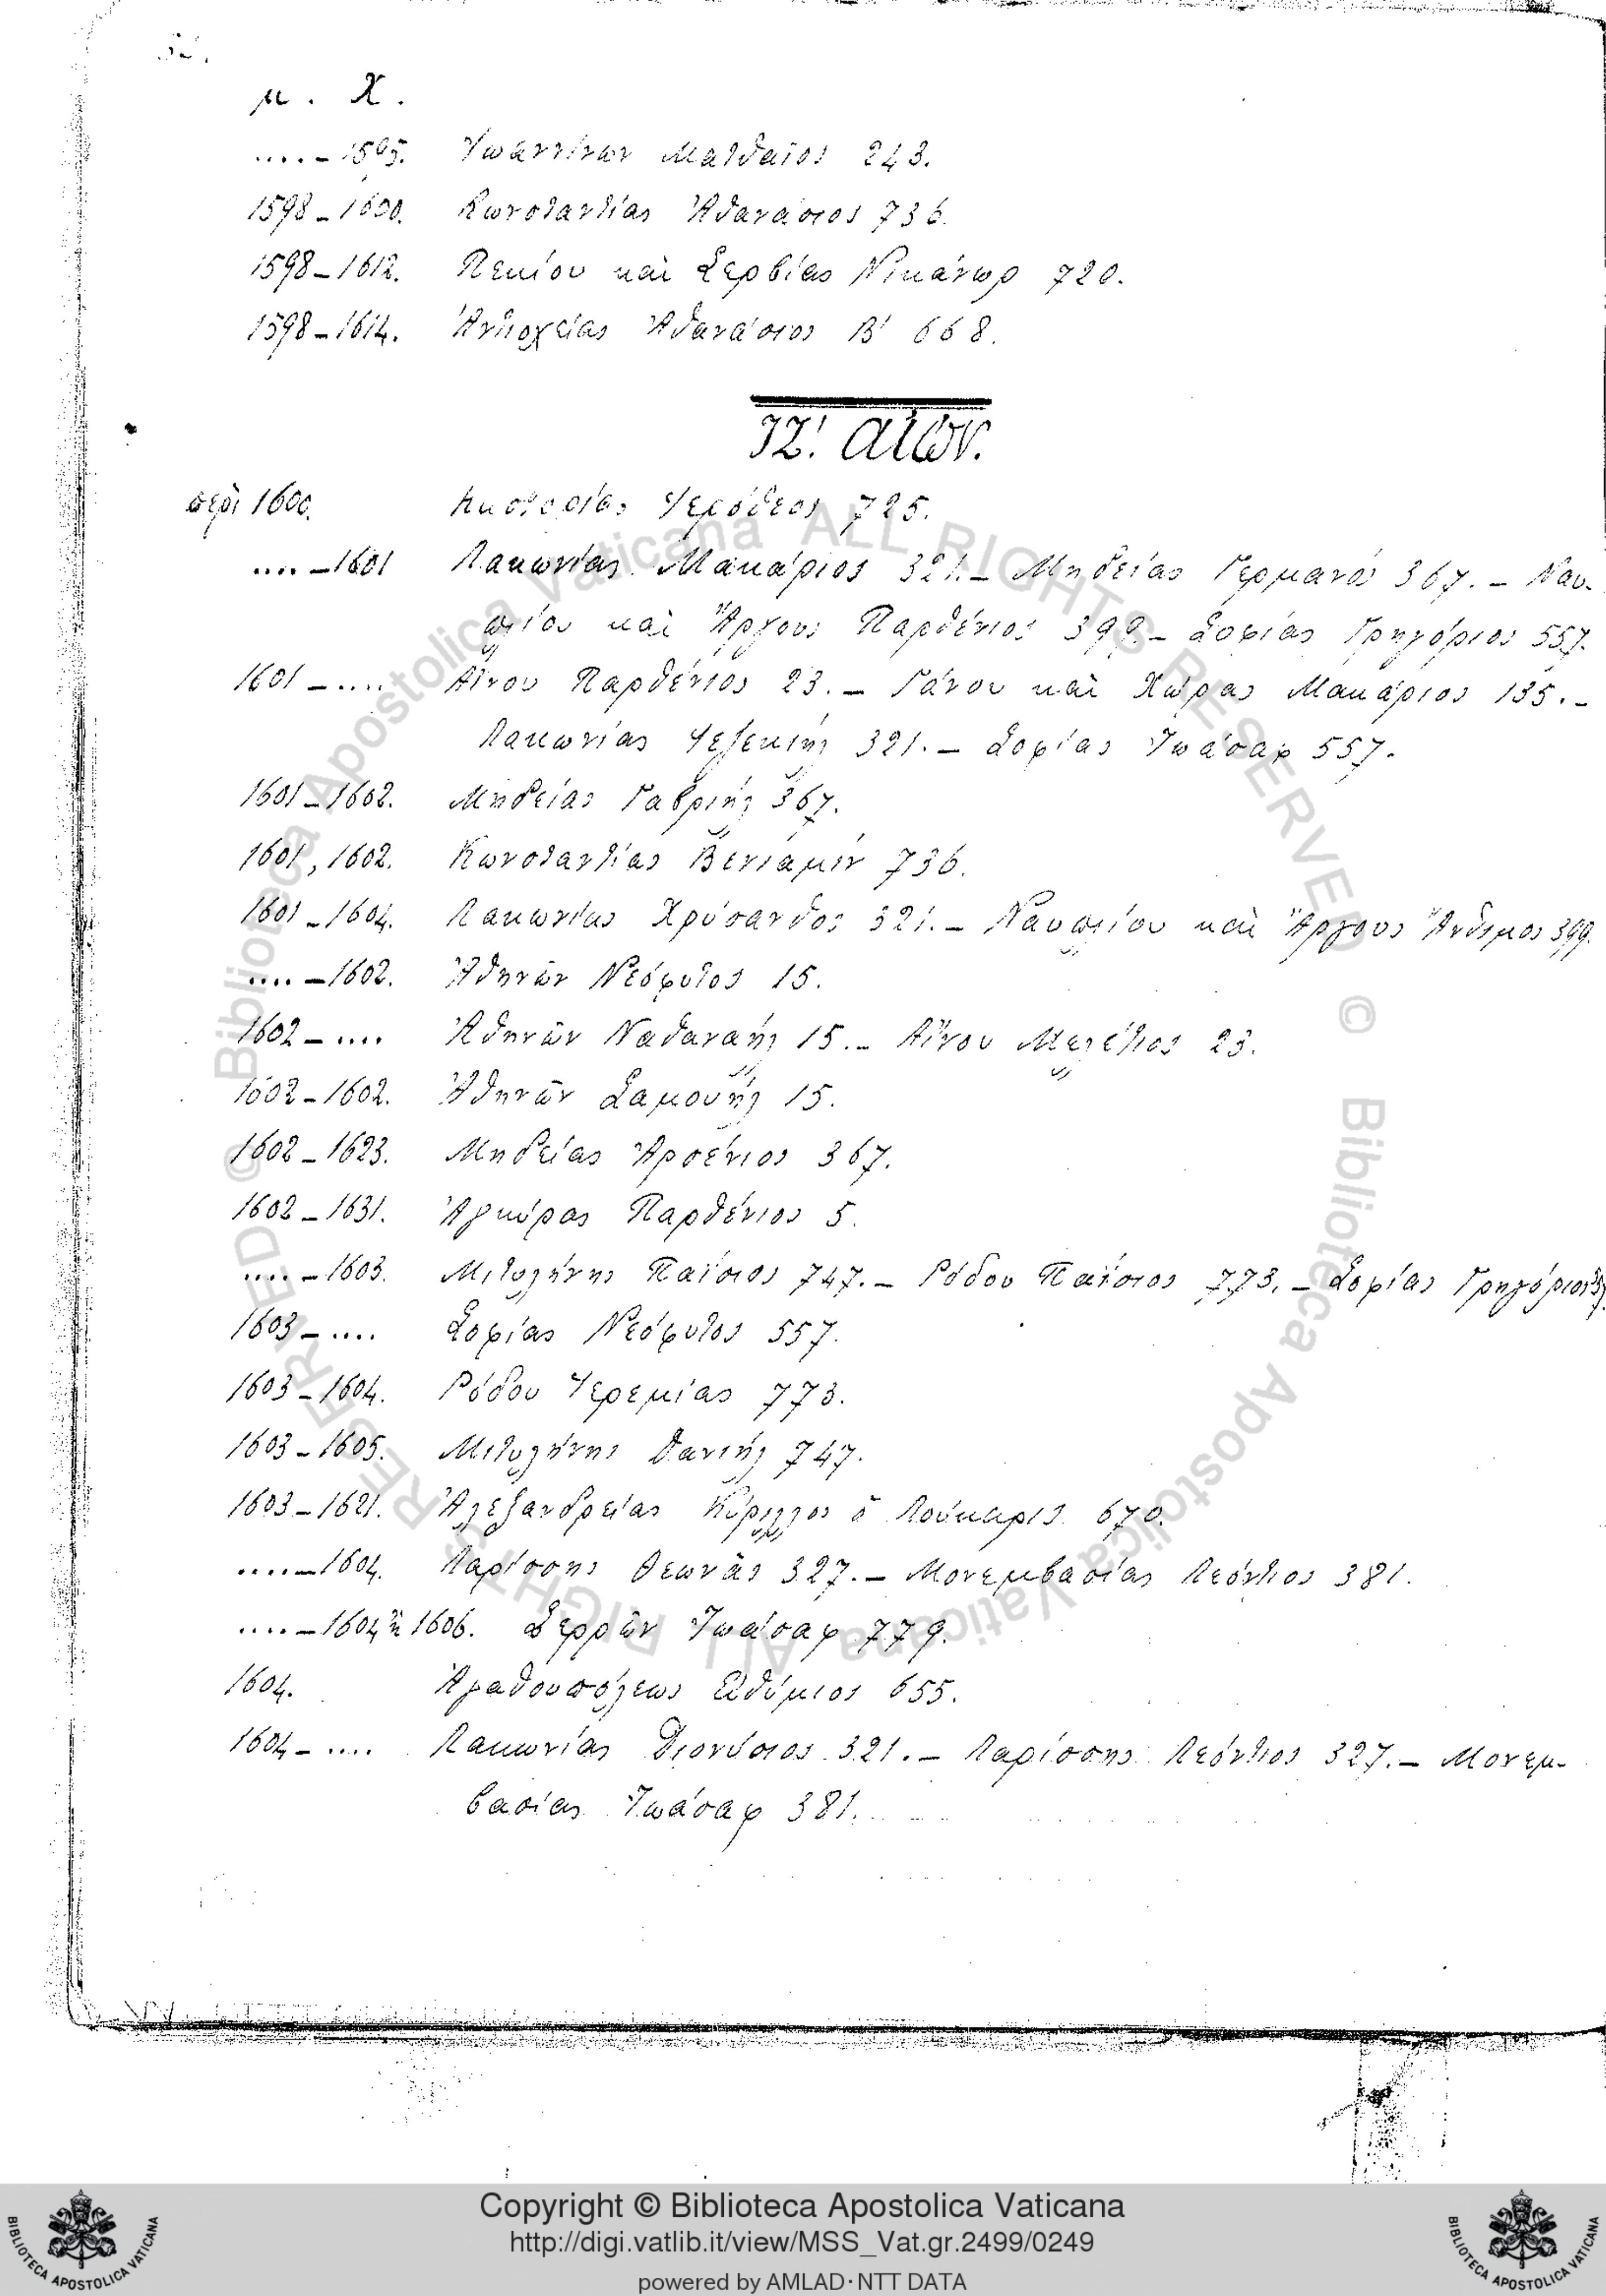 μ. Χ.
....–1595. Ἰωαννίνων Ματθαῖος 243.
1598–1600. Κωνσταντίας Ἀθανάσιος 736.
1598–1612. Πεκίου καὶ Σερβίας Νικάνωρ 720.
1598–1614. Ἀντιοχείας Ἀθανάσιος Β' 668.
ΙΖ'. αἰών.
περὶ 1600. Καστορίας Ἱερόθεος 725.
....–1601 Λακωνίας Μακάριος 321.– Μηδείας Γερμανὸ 367.– Ναυ-
πλίου καὶ Ἄργους Παρθένιος 399.– Σοφίας Γρηγόριος 557.
1601–.... Αἴνου Παρθένιος 23.– Γάνου καὶ Χώρας Μακάριος 135.–
Λακωνίας Ἰεζεκιὴλ 321.– Σοφίας Ἰωάσαφ 557.
1601–1602. Μηδείας Γαβριὴλ 367.
1601, 1602. Κωνσταντίας Βενιαμὶν 736.
1601–1604. Λακωνίας Χρύσανθος 321.– Ναυπλίου καὶ Ἄργους Ἄνθιμος 399.
....–1602. Ἀθηνῶν Νεόφυτος 15.
1602–.... Ἀθηνῶν Ναθαναὴλ 15.– Αἴνου Μελέτιος 23.
1602–1602. Ἀθηνῶν Σαμουὴλ 15.
1602–1623. Μηδείας Ἀρσένιος 367.
1602–1631. Ἀγκύρας Παρθένιος 5.
....–1603. Μιτυλήνης Παΐσιος 747.– Ρόδου Παΐσιος 773.– Σοφίας Γρηγόριος
1603–.... Σοφίας Νεόφυτος 557.
1603–1604. Ρόδου Ἱερεμίας 773.
1603–1605. Μιτυλήνης Δανιὴλ 747.
1603–1621. Ἀλεξανδρείας Κύριλλος ὁ Λούκαρις 670.
....–1604. Λαρίσσης Θεωνᾶς 327.– Μονεμβασίας Λεόντιος 381.
....–1604 ἢ 1606. Σερρῶν Ἰωάσαφ 779.
1604. Ἀγαθουπόλεως Εὐθύμιος 655.
1604–.... Λακωνίας Διονύσιος 321.– Λαρίσσης Λεόντιος 327.– Μονεμ-
βασίας Ἰωάσαφ 381.
© Biblioteca Apostolica Vaticana ALL RIGHTS RESERVED © Biblioteca Apostolica Vaticana ALL RIGHTS RESERVED
Copyright © Biblioteca Apostolica Vaticana
http://digi.vatlib.it/view/MSS_Vat.gr.2499/0249
powered by AMLAD·NTT DATA
BIBLIOTECA APOSTOLICA VATICANA
BIBLIOTECA APOSTOLICA VATICANA